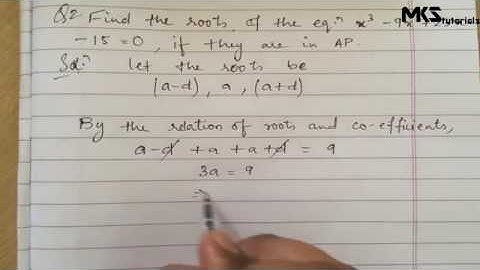 Q2 Find the roots of the eq.ⁿ x³ - 9x
MKS tutorials
-15=0, if they are in AP.
Sol.ⁿ let the roots be
(a-d), a, (a+d)
By the relation of roots and co-efficients,
a-d + a + a+d = 9
3a = 9
⇒